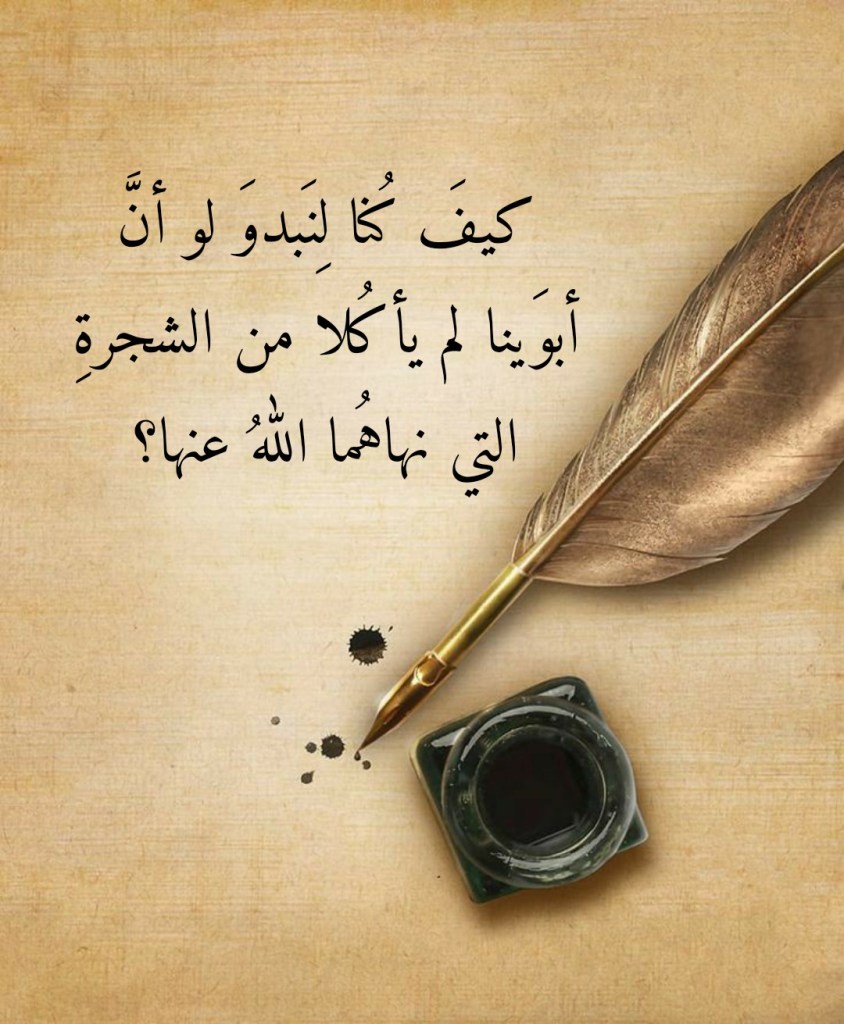 كيفَ كُنا لِنَبدوَ لو أنَّ
أبوَينا لم يأكُلا من الشجرةِ
التي نهاهُما اللهُ عنها؟